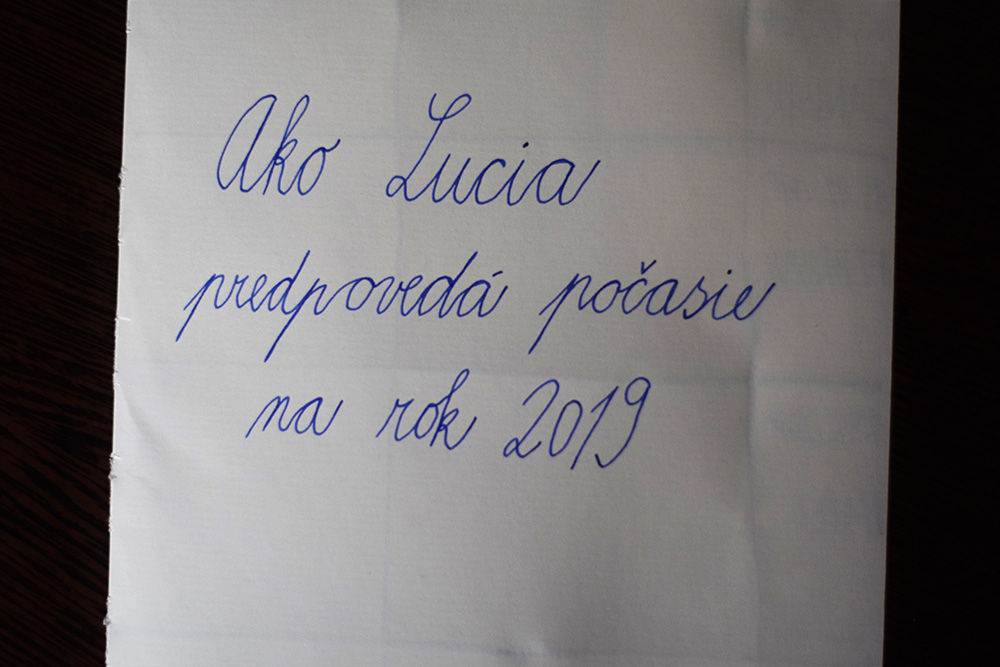 Ako Lucia
predpovedá počasie
na rok 2019